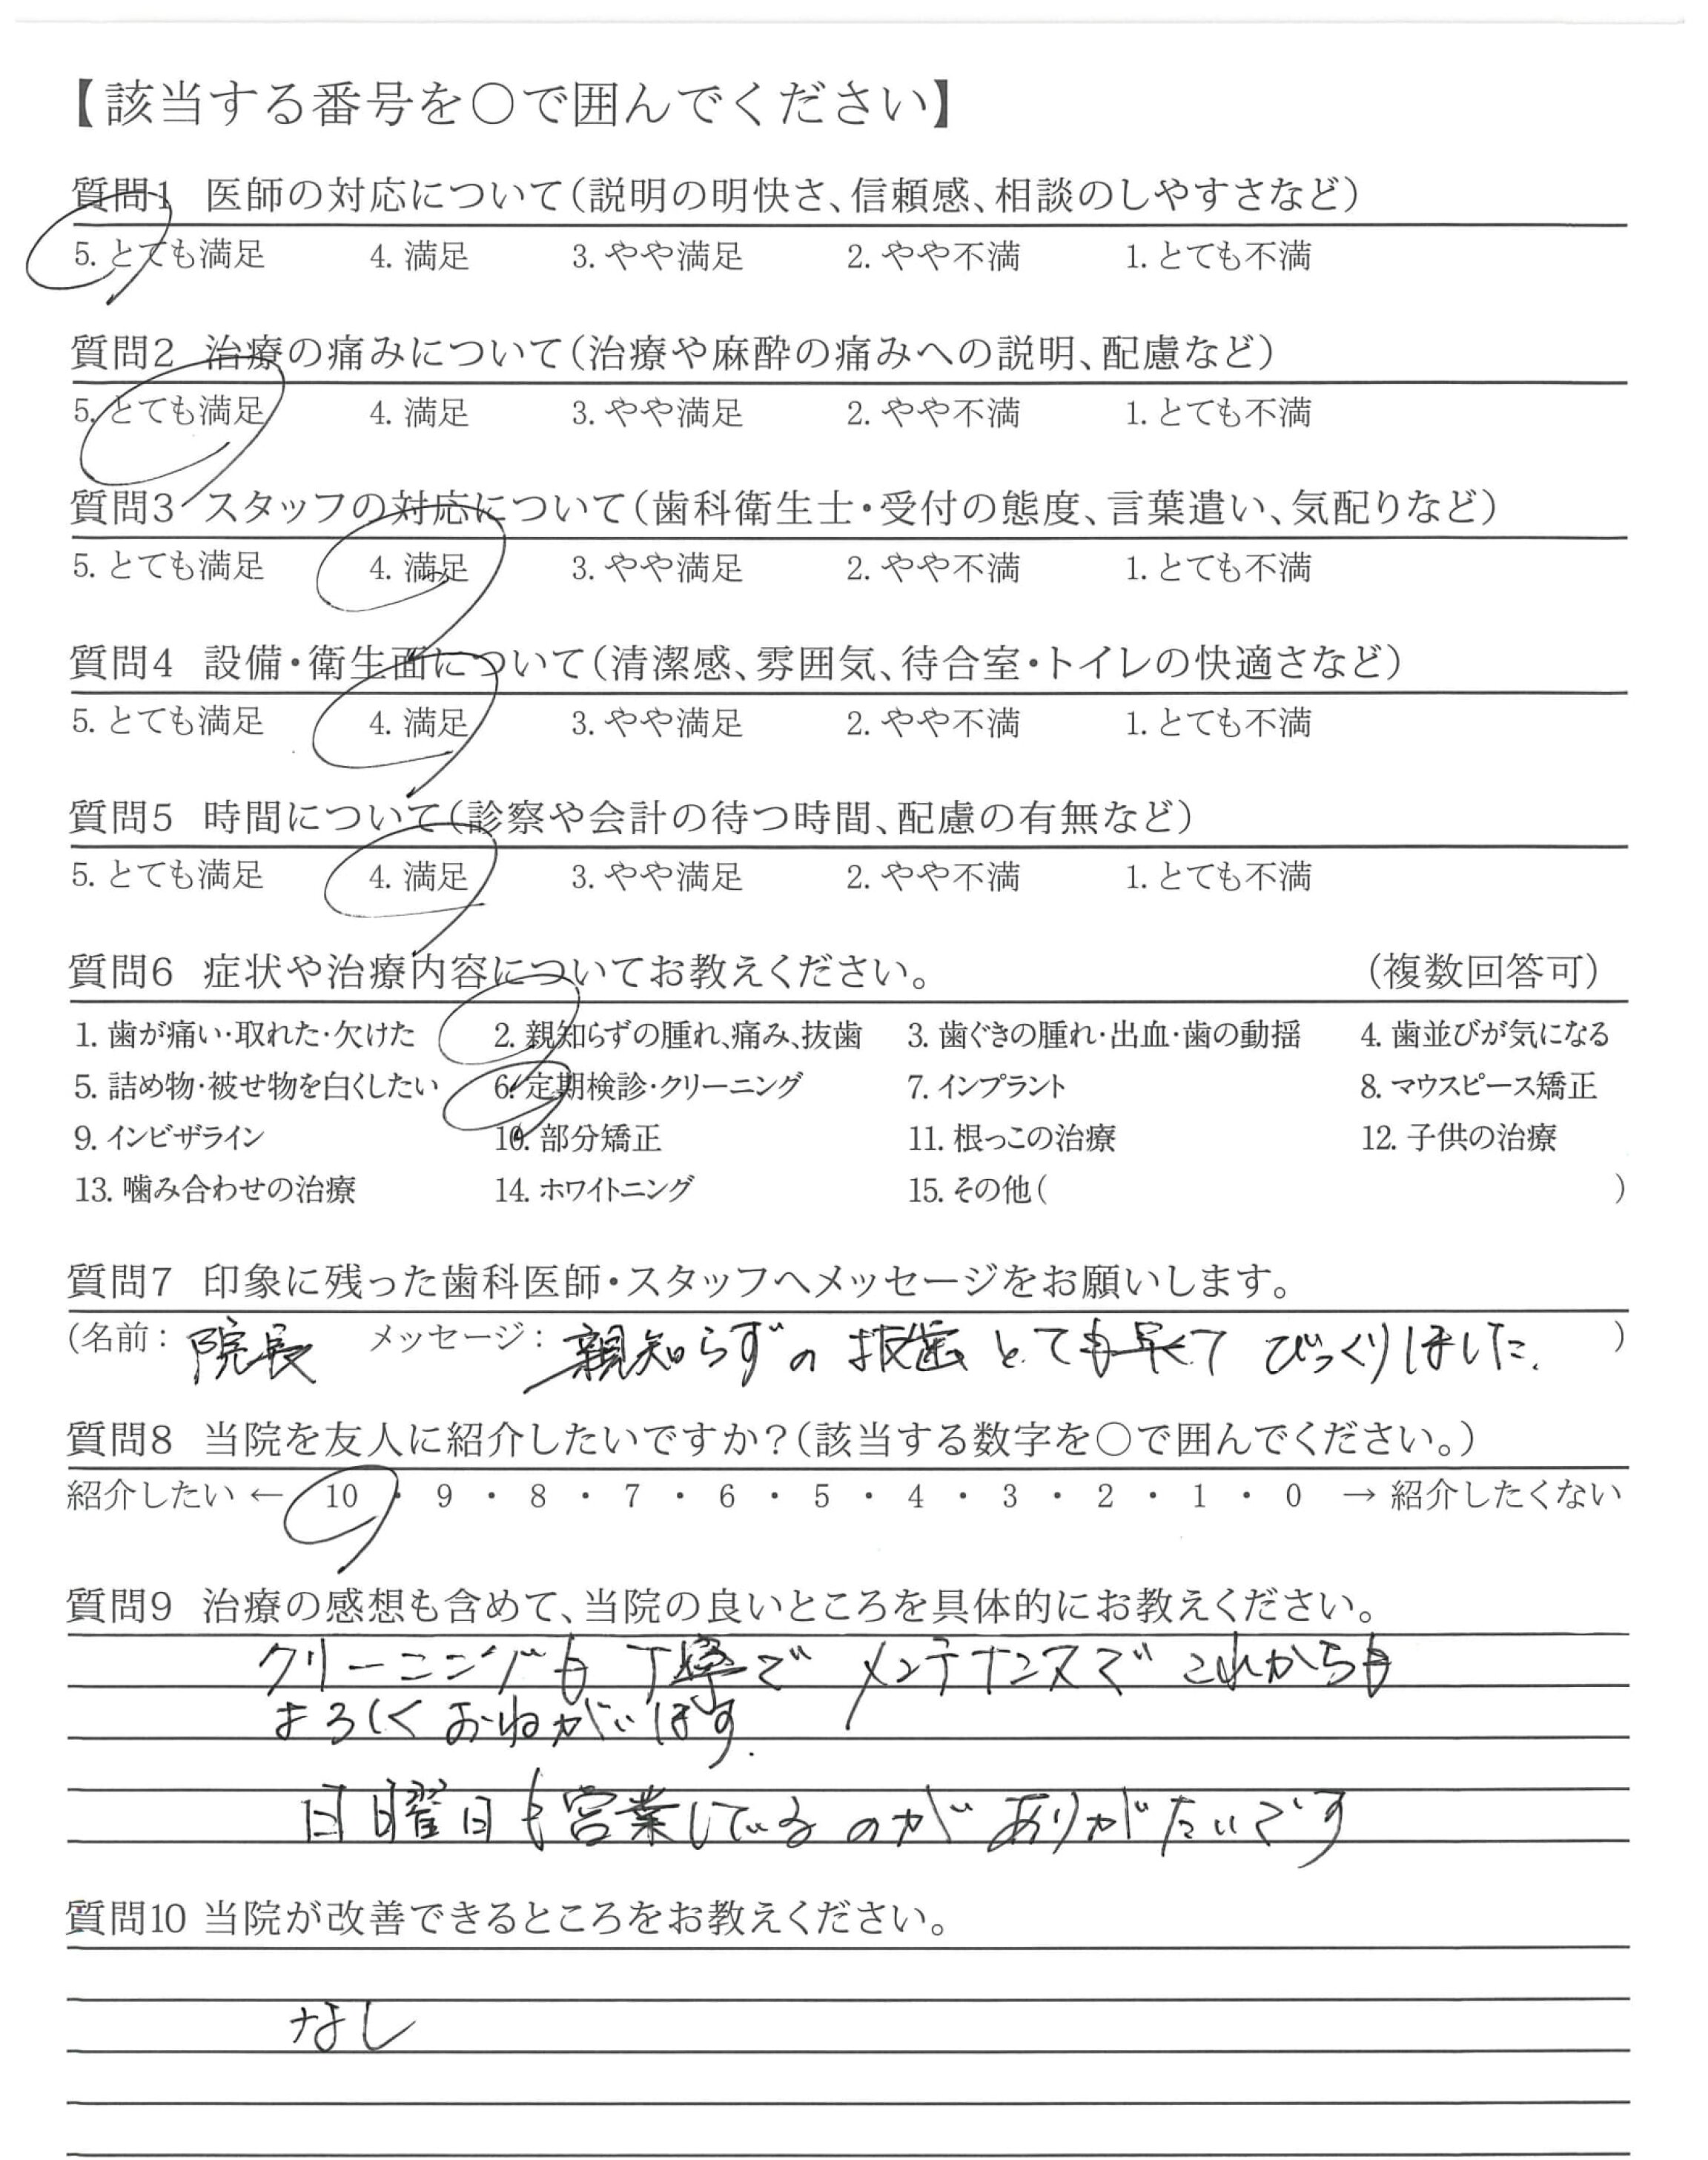 【該当する番号を○で囲んでください】
質問1 医師の対応について（説明の明快さ、信頼感、相談のしやすさなど）
5. とても満足 4. 満足 3. やや満足 2. やや不満 1. とても不満
質問2 治療の痛みについて（治療や麻酔の痛みへの説明、配慮など）
5. とても満足 4. 満足 3. やや満足 2. やや不満 1. とても不満
質問3 スタッフの対応について（歯科衛生士・受付の態度、言葉遣い、気配りなど）
5. とても満足 4. 満足 3. やや満足 2. やや不満 1. とても不満
質問4 設備・衛生面について（清潔感、雰囲気、待合室・トイレの快適さなど）
5. とても満足 4. 満足 3. やや満足 2. やや不満 1. とても不満
質問5 時間について（診察や会計の待つ時間、配慮の有無など）
5. とても満足 4. 満足 3. やや満足 2. やや不満 1. とても不満
質問6 症状や治療内容についてお教えください。 （複数回答可）
1. 歯が痛い・取れた・欠けた 2. 親知らずの腫れ、痛み、抜歯 3. 歯ぐきの腫れ・出血・歯の動揺 4. 歯並びが気になる
5. 詰め物・被せ物を白くしたい 6. 定期検診・クリーニング 7. インプラント 8. マウスピース矯正
9. インビザライン 10. 部分矯正 11. 根っこの治療 12. 子供の治療
13. 噛み合わせの治療 14. ホワイトニング 15. その他（ ）
質問7 印象に残った歯科医師・スタッフへメッセージをお願いします。
（名前：院長 メッセージ：親知らずの抜歯とても早くてびっくりしました. ）
質問8 当院を友人に紹介したいですか？（該当する数字を○で囲んでください。）
紹介したい ← 10 ・ 9 ・ 8 ・ 7 ・ 6 ・ 5 ・ 4 ・ 3 ・ 2 ・ 1 ・ 0 → 紹介したくない
質問9 治療の感想も含めて、当院の良いところを具体的にお教えください。
クリーニングも丁寧で メンテナンスで これからも
よろしくおねがいします.
日曜日も営業しているのがありがたいです
質問10 当院が改善できるところをお教えください。
なし